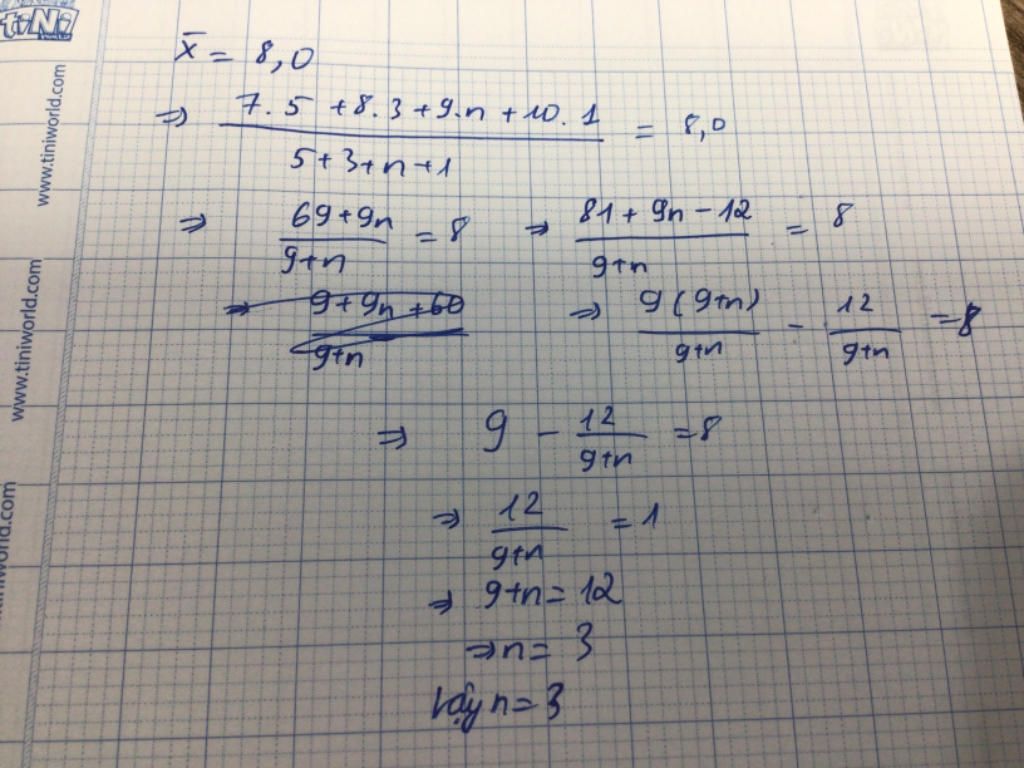 tiNi
www.tiniworld.com
www.tiniworld.com
tiniworld.com
x̄ = 8,0
⇒ (7.5 + 8.3 + 9.n + 10.1) / (5 + 3 + n + 1) = 8,0
⇒ (69 + 9n) / (9 + n) = 8 ⇒ (81 + 9n - 12) / (9 + n) = 8
⇒ (9 + 9n + 60) / (9 + n) ⇒ 9(9+n) / (9+n) - 12 / (9+n) = 8
⇒ 9 - 12 / (9+n) = 8
⇒ 12 / (9+n) = 1
⇒ 9+n = 12
⇒ n = 3
Vậy n = 3